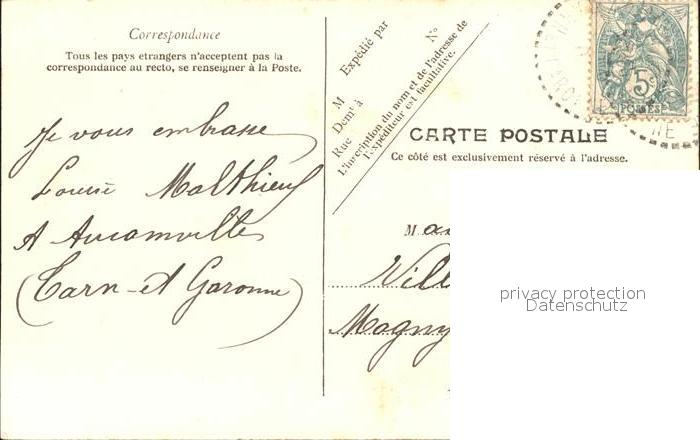 Correspondance
Tous les pays etrangers n'acceptent pas la
correspondance au recto, se renseigner à la Poste.
Je vous embrasse
Louise Malthieu
A Aucamville
(Tarn-et Garonne)
Expédié par
M
N°
Demt à
Rue
L'inscription du nom et de l'adresse de
l'expéditeur est facultative.
5c
POSTES
CARTE POSTALE
Ce côté est exclusivement réservé à l'adresse.
M
Magny
privacy protection
Datenschutz